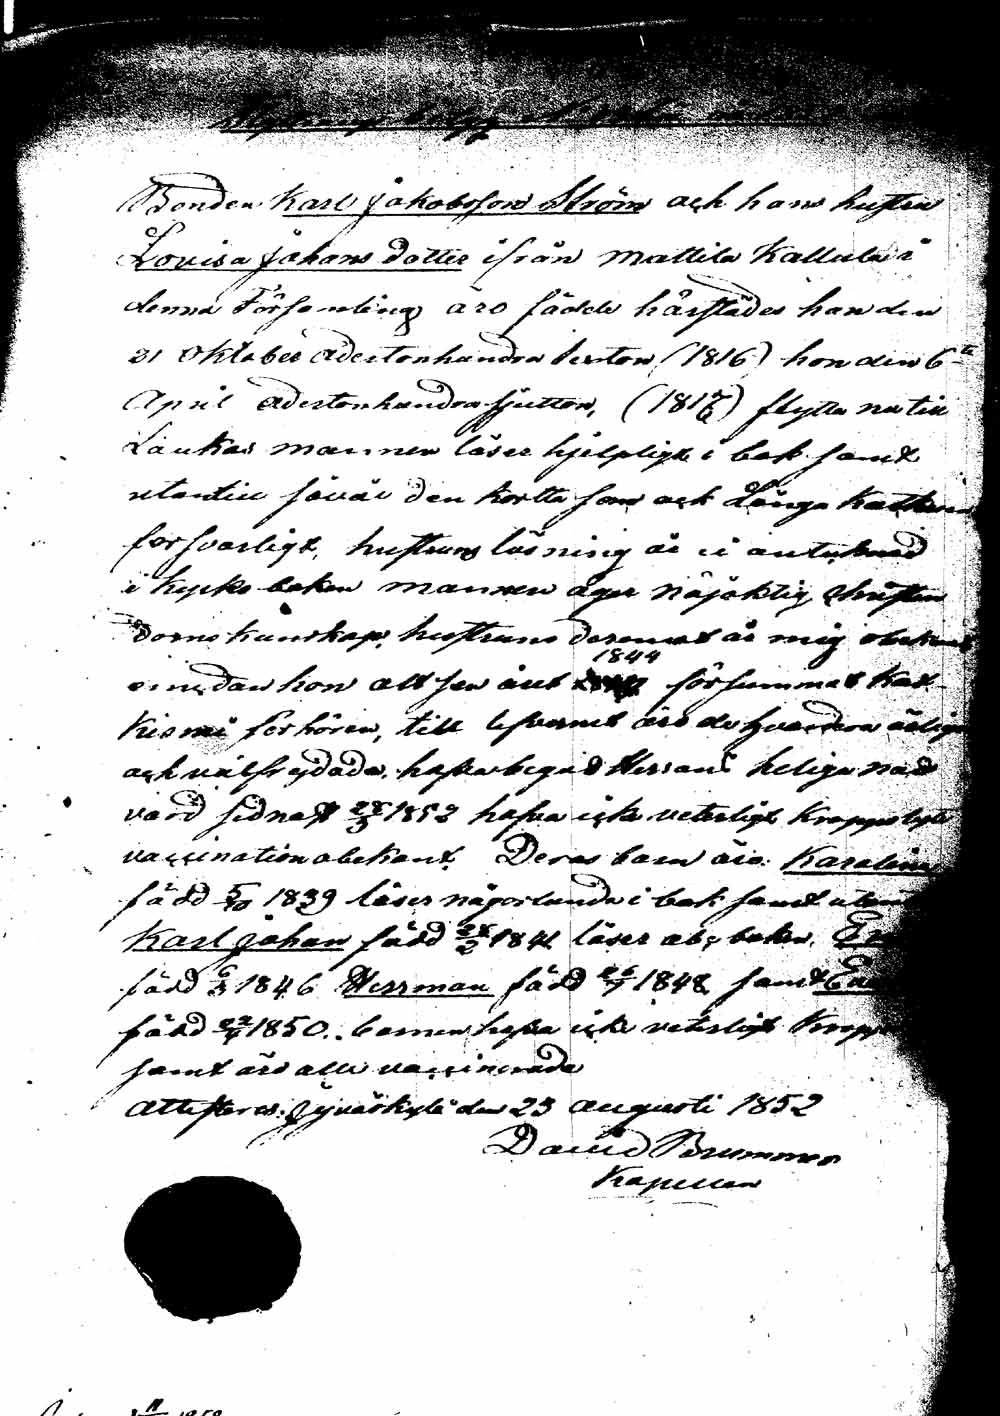 Bonden Karl Jakobsson Ström ock hans hustru
Lovisa Johans dotter ifrån Mattila Kallula i
denna Församling äro födde härstädes han den
21 Oktober adertonhundra sexton (1816) hon den 6te
April adertonhundra sjutton, (1817) flytta nu till
Laukas mannen läser hjelpligt i bok samt
utantill såväl den korta som ock Långa Katkesen
forsvarligt, hustruns läsning är ei antecknad
i kyrko boken mannen äger nöjaktig christen
doms kunskap, hustruns deremot är mig obekant
emedan hon allt sen året 1844 försummat Kat-
kismi förhören, till lefvernet äro de hvardera ärliga
ock välfrejdade, hafva begått Herrans heliga natt
vard sidnast 28/3 1852 hafva icke veterligt Kroppslyte
vaccination obekant. Deras barn äro: Karolina
född 5/10 1839 läser någorlunda i bok samt utan
Karl Johan född 1841 läser abc boken,
född 6/3 1846 Herrman född 1848 samt
född 1850.. barnen hafva icke veterligt Kropps
samt äro alla vaccinerade
Attesteras. Jyväskylä den 23 augusti 1852
David Brummer
Kapellan